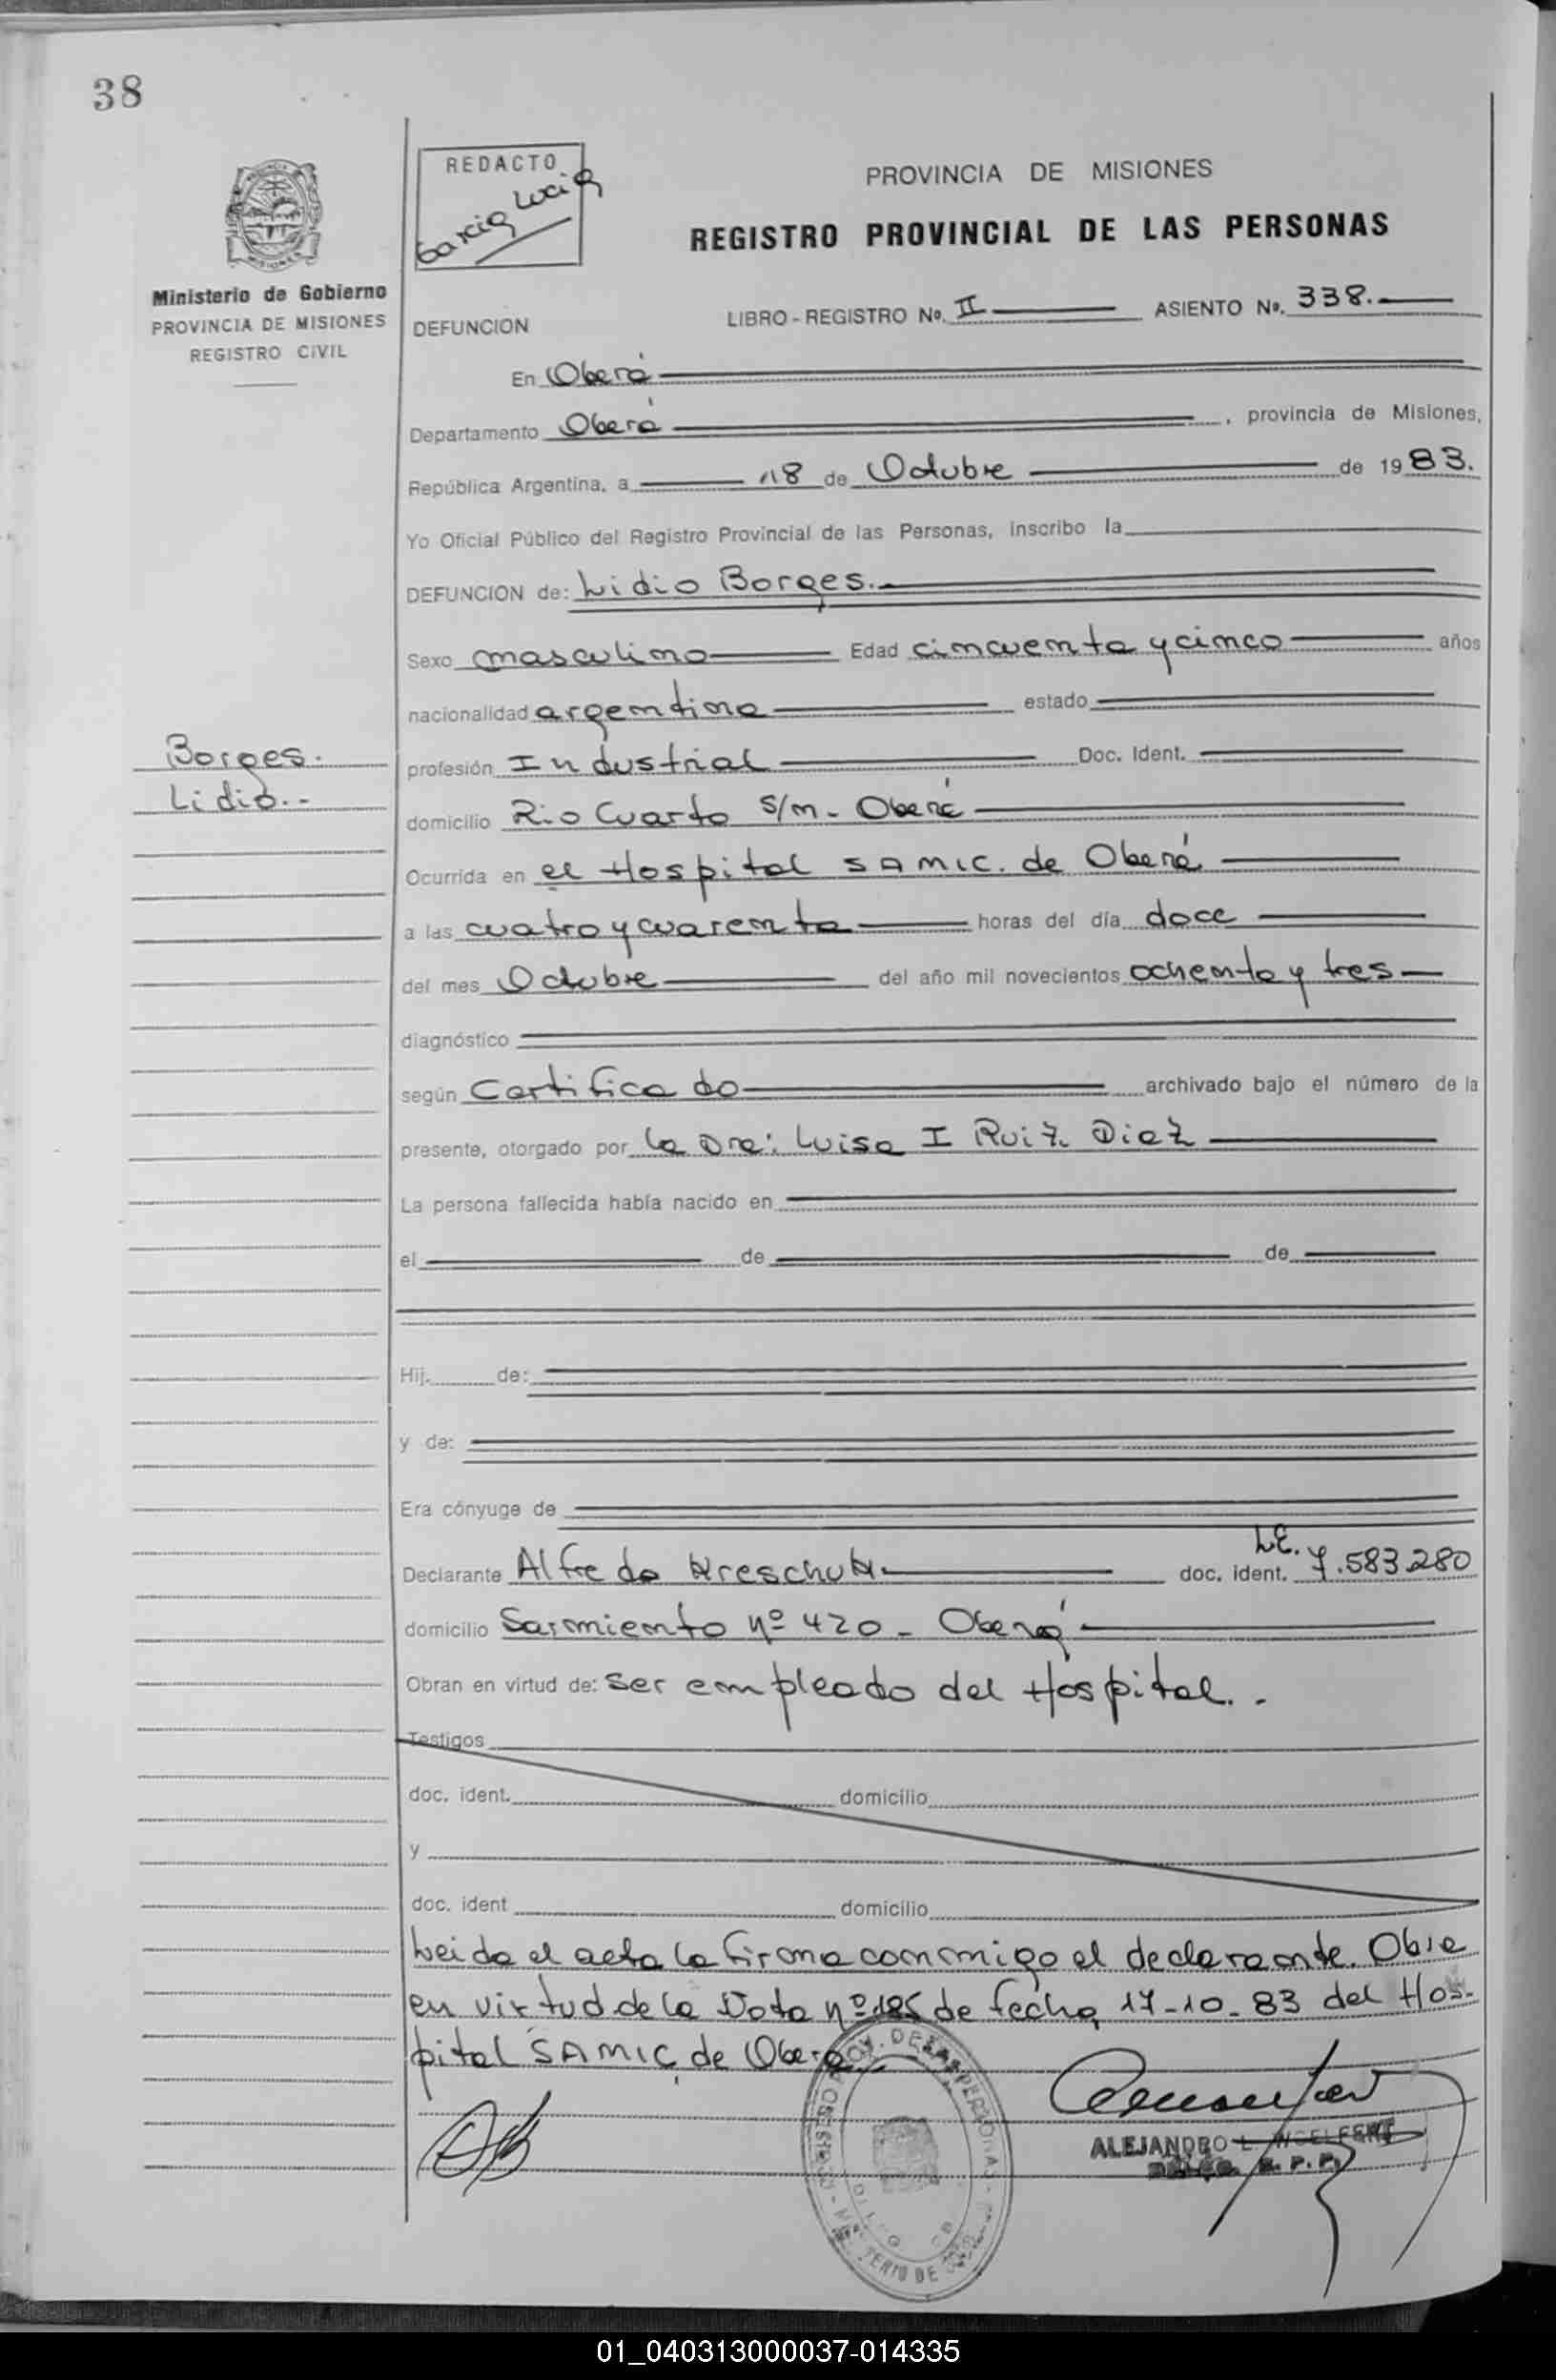 38
REDACTO
Garcia Lucia
PROVINCIA DE MISIONES
REGISTRO PROVINCIAL DE LAS PERSONAS
Ministerio de Gobierno
PROVINCIA DE MISIONES
REGISTRO CIVIL
DEFUNCION LIBRO-REGISTRO No. II ASIENTO No. 338.
En Oberá
Departamento Oberá, provincia de Misiones,
República Argentina, a 18 de Octubre de 1983.
Yo Oficial Público del Registro Provincial de las Personas, inscribo la
DEFUNCION de: Lidio Borges.
Sexo masculino Edad cincuenta y cinco años
nacionalidad argentina estado
Borges.
Lidio.-
profesión Industrial Doc. Ident.
domicilio Rio Cuarto s/n - Oberá
Ocurrida en el Hospital SAMIC. de Oberá
a las cuatro y cuarenta horas del día doce
del mes Octubre del año mil novecientos ochenta y tres
diagnóstico
según Certificado archivado bajo el número de la
presente, otorgado por la Dra: Luisa I Ruiz Diaz
La persona fallecida había nacido en
el de de
Hij. de:
y de:
Era cónyuge de
Declarante Alfredo doc. ident. L.E. 7.583.280
domicilio Sarmiento nº 420 - Oberá
Obran en virtud de: ser empleado del Hospital.-
Testigos
doc. ident. domicilio
y
doc. ident domicilio
Leida el acta la firma conmigo el declarante. Obra
en virtud de la Nota nº 185 de fecha 17-10-83 del Hos-
pital SAMIC de Oberá
ALEJANDRO L.
R. P. P.
01_040313000037-014335